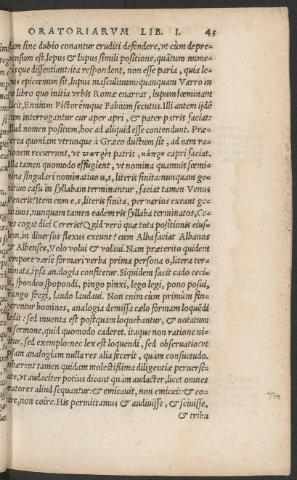 ORATORIARVM LIB. I. 45
dam sine dubio conantur eruditi defendere, vt cùm depre-
hensum est lepus & lupus simili positione, quātum nume-
risque dissentiant: ita respondent, non esse paria, quia le-
pus epicœnon sit, lupus masculinum: quanquam Varro in
eo libro quo initia vrbis Romæ enarrat, lupum fœminam
dicit, Ennium Pictorémque Fabium secutus. Illi autem ijdē
cùm interrogantur cur aper apri, & pater patris faciat:
illud nomen positum, hoc ad aliquid esse contendunt. Præ-
terea quoniam vtrunque à Græco ductum sit, ad eam ra-
tionem recurrunt, vt πατρὸς patris, κάπρου apri faciat.
Illa tamen quomodo effugient, vt nomina quamuis fœmi-
na singulari nominatiuo u, s, literis finita: nunquam ge-
nitiuo casu in syllabam terminentur, faciat tamen Venus
Veneris: Item cùm e, s, literis finita, per varios exeant ge-
nitiuos, nunquam tamen eadem ris syllaba terminatos, Ce-
res cogat dici Cereris? Quid verò quæ tota positionis eius-
dem in diuersos flexus exeunt? cum Alba faciat Albanos
& Albenses, Volo volui & volaui. Nam præterito quidem
tempore variè formari verba prima persona o, litera ter-
minata, ipsa analogia confitetur. Siquidem facit cado ceci-
di, spondeo spopondi, pingo pinxi, lego legi, pono posui,
frango fregi, laudo laudaui. Non enim cùm primùm fin-
gerentur homines, analogia demissa cœlo formam loquēdi
dedit: sed inuenta est postquam loquebantur, & notatum
in sermone, quid quomodo caderet. itaque non ratione ni-
titur, sed exemplo: nec lex est loquendi, sed obseruatio: vt
ipsam analogiam nulla res alia fecerit, quàm consuetudo.
Inhærent tamen quidam molestissima diligentiæ peruersi-
tate, vt audaciter potiùs dicant quàm audacter, licet omnes
oratores aliud sequantur: & emicauit, non emicuit: & co-
ire, non coire. His permittamus & audiuisse, & sciuisse,
& tribu